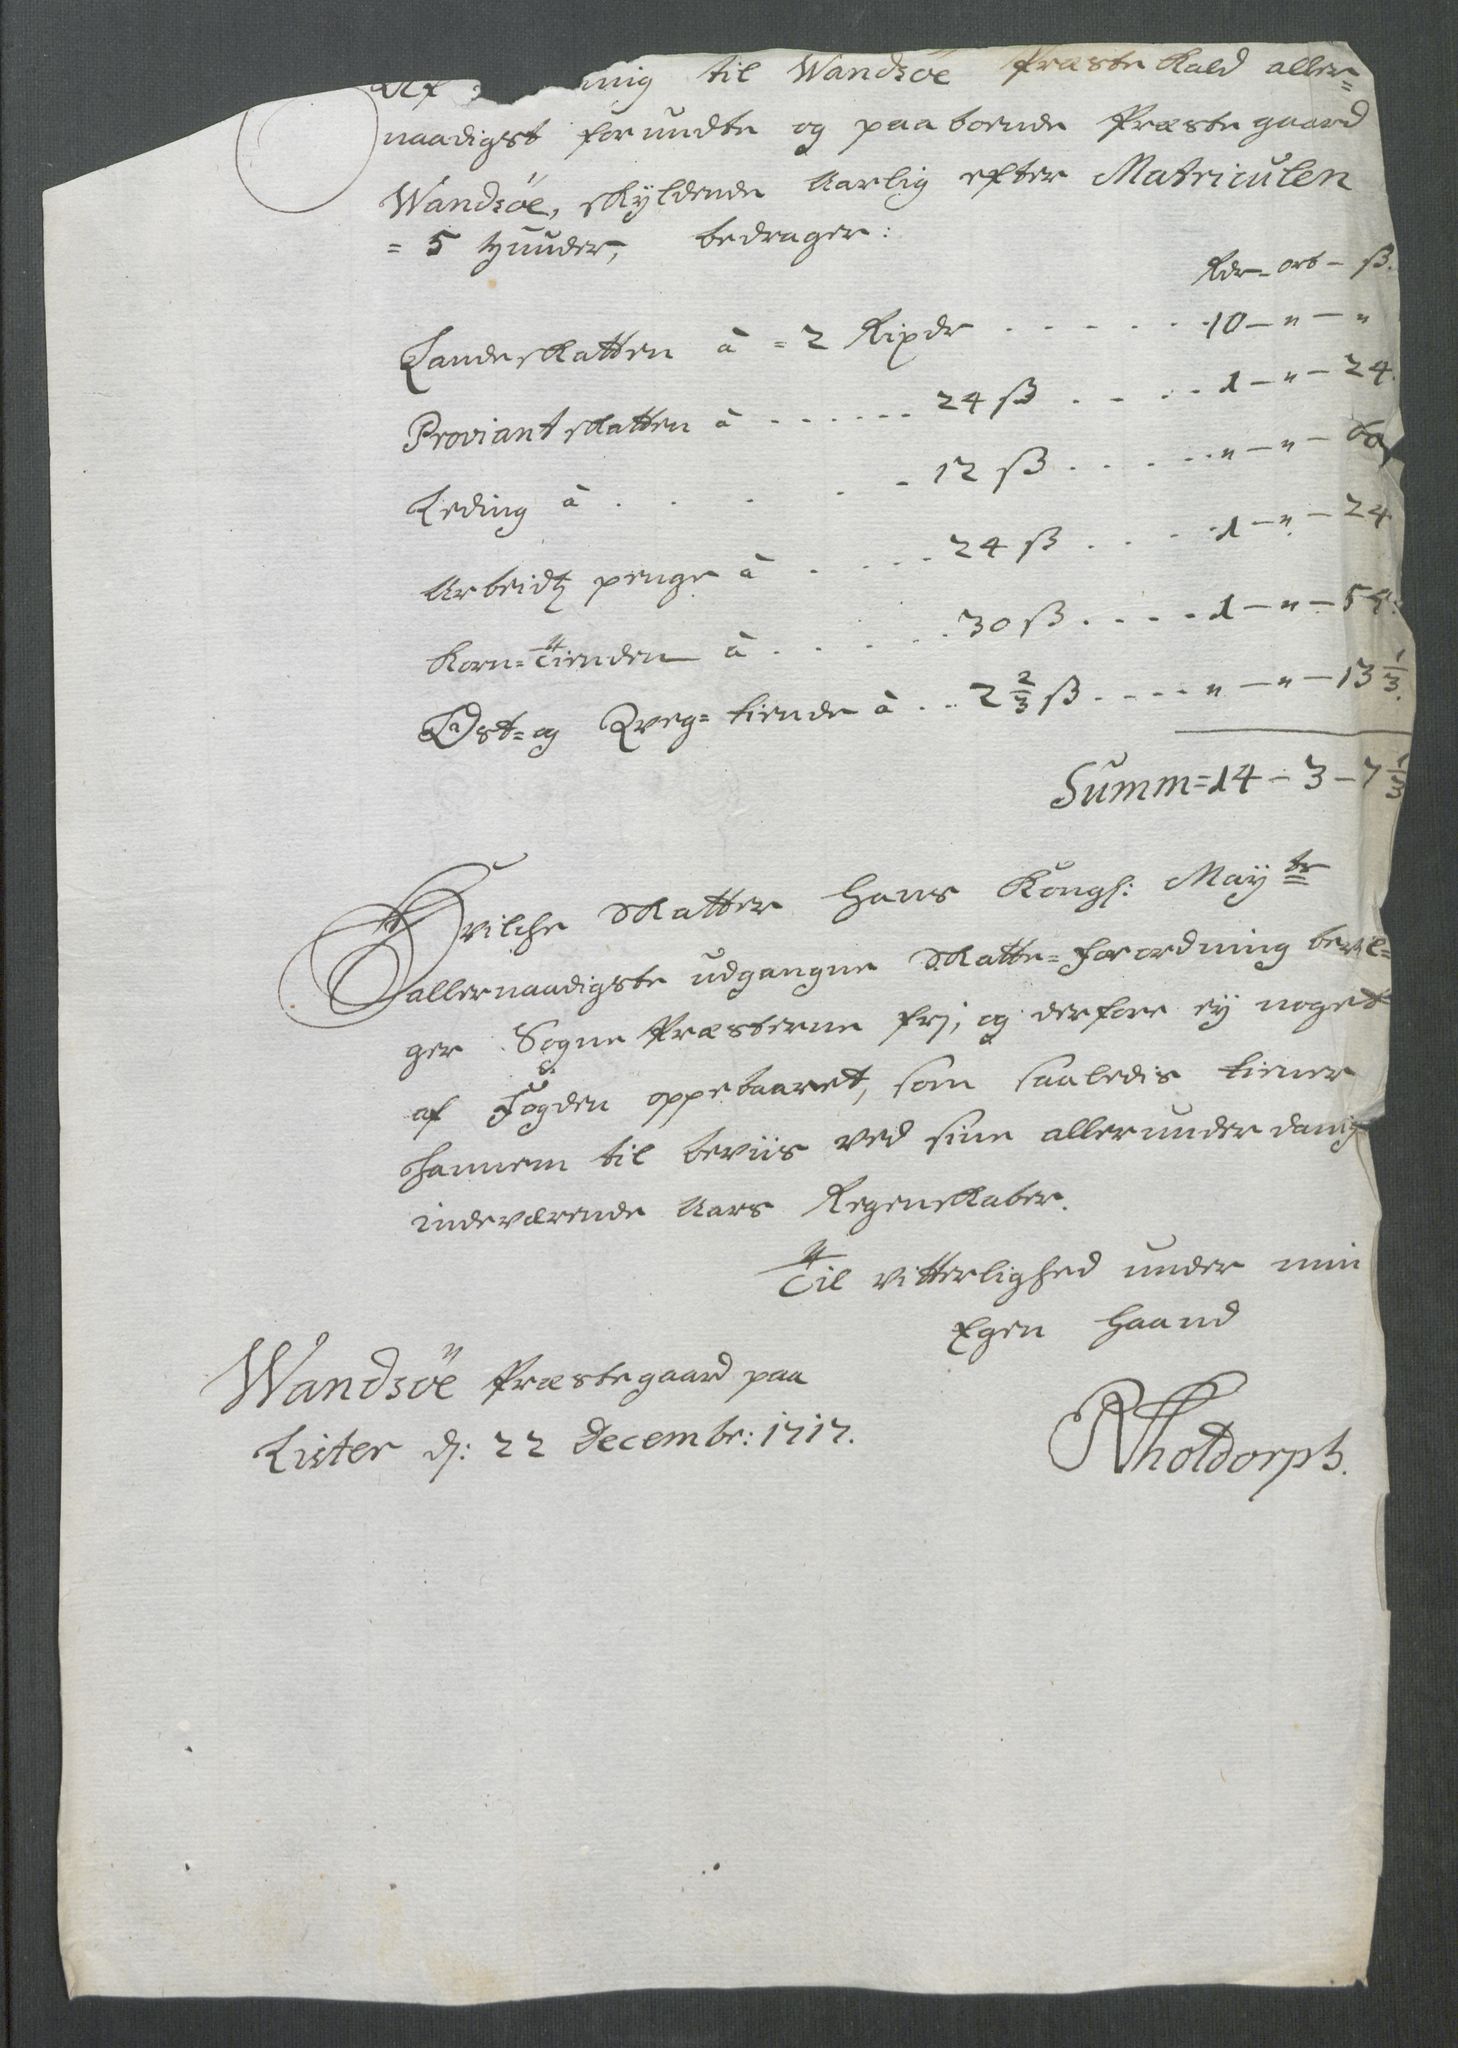 Af mig til Wandsöe Præste Kald aller=
naadigst forundte og paaboende Præstegaard
Wandsöe, skyldende Aarlig efter Matriculen
= 5 huuder, bedrager:
Rdr - ort - ß.
Landskatten à = 2 Rixdr . . . . . . 10 - " - "
Proviantskatten à . . . . . . 24 ß . . . . . 1 - " - 24.
Leding à . . . . . 12 ß . . . . . " - " - 60
Arbeidtz penge à . . . . . 24 ß . . . . 1 - " - 24
Korn=Tienden à . . . . . . 30 ß . . . . 1 - " - 54.
Ost= og Qveg=tiende à . . 2 2/3 ß . . . . " - " - 13 1/3.
Summ = 14 - 3 - 7 1/3
Hvilche Skatter Hans Kongl: Mayts
allernaadigste udgangne Skatte=forordning bevil=
ger Sogne Præsterne frj, og derfore ey noget
af Fogden oppebaaret, som saaledis tiener
hannem til beviis ved sine allerunderdanigs
indeværende Aars Regenskaber.
Til vitterlighed under min
Egen Haand
Wandsöe Præstegaard paa
Lister d: 22 Decembr: 1717.
RHoldorph.